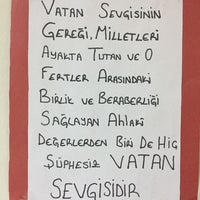 VATAN SEVGİSİNİN
GEREĞİ, MİLLETLERİ
AYAKTA TUTAN VE O
FERTLER ARASINDAKİ
BİRLİK VE BERABERLİĞİ
SAĞLAYAN AHLAKİ
DEĞERLERDEN BİRİ DE HİÇ
ŞÜPHESİZ VATAN
SEVGİSİDİR